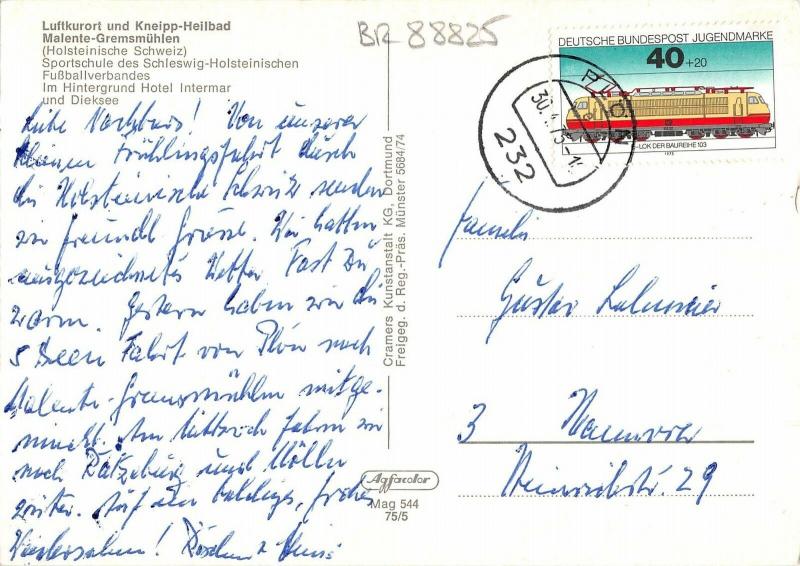 Luftkurort und Kneipp-Heilbad
Malente-Gremsmühlen
(Holsteinische Schweiz)
Sportschule des Schleswig-Holsteinischen
Fußballverbandes
Im Hintergrund Hotel Intermar
und Dieksee
BR 88825
DEUTSCHE BUNDESPOST JUGENDMARKE
40+20
E-LOK DER BAUREIHE 103
1975
232
30.4.75
Liebe Nachbars! Von unserer
kleinen Frühlingsfahrt durch
die Holsteinische Schweiz senden
wir freundl Grüsse. Wir hatten
ausgezeichnetes Wetter Fast zu
warm. Gestern haben wir die
5 Seen Fahrt von Plön nach
Malente-Gremsmühlen mitge-
macht. Am Mittwoch fahren wir
nach Ratzeburg und Mölln
weiter. Auf ein baldiges, frohes
Wiedersehen!
Cramers Kunstanstalt KG, Dortmund
Freigeg. d. Reg.-Präs. Münster 5684/74
Agfacolor
Mag 544
75/5
Familie
Gustav
3 Hannover
29